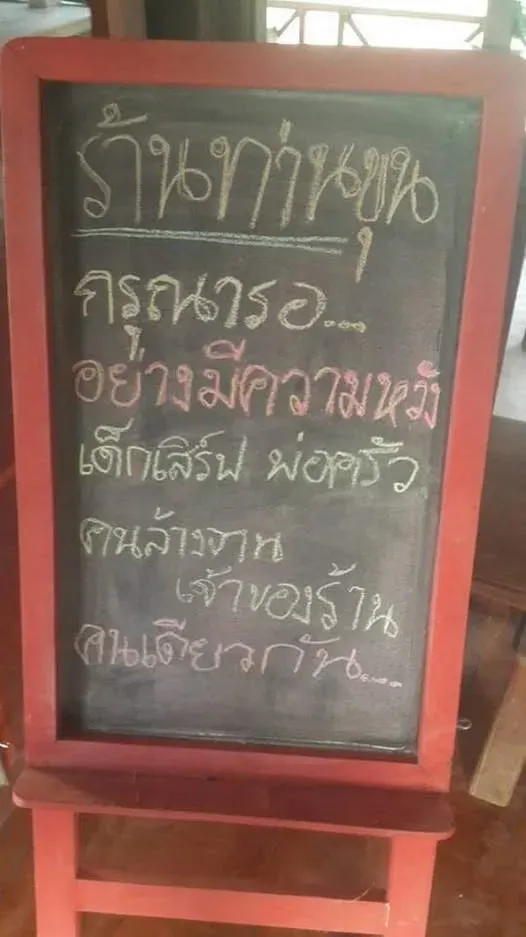 ร้านท่านขุน
กรุณารอ...
อย่างมีความหวัง
เด็กเสิร์ฟ พ่อครัว
คนล้างจาน
เจ้าของร้าน
คนเดียวกัน....